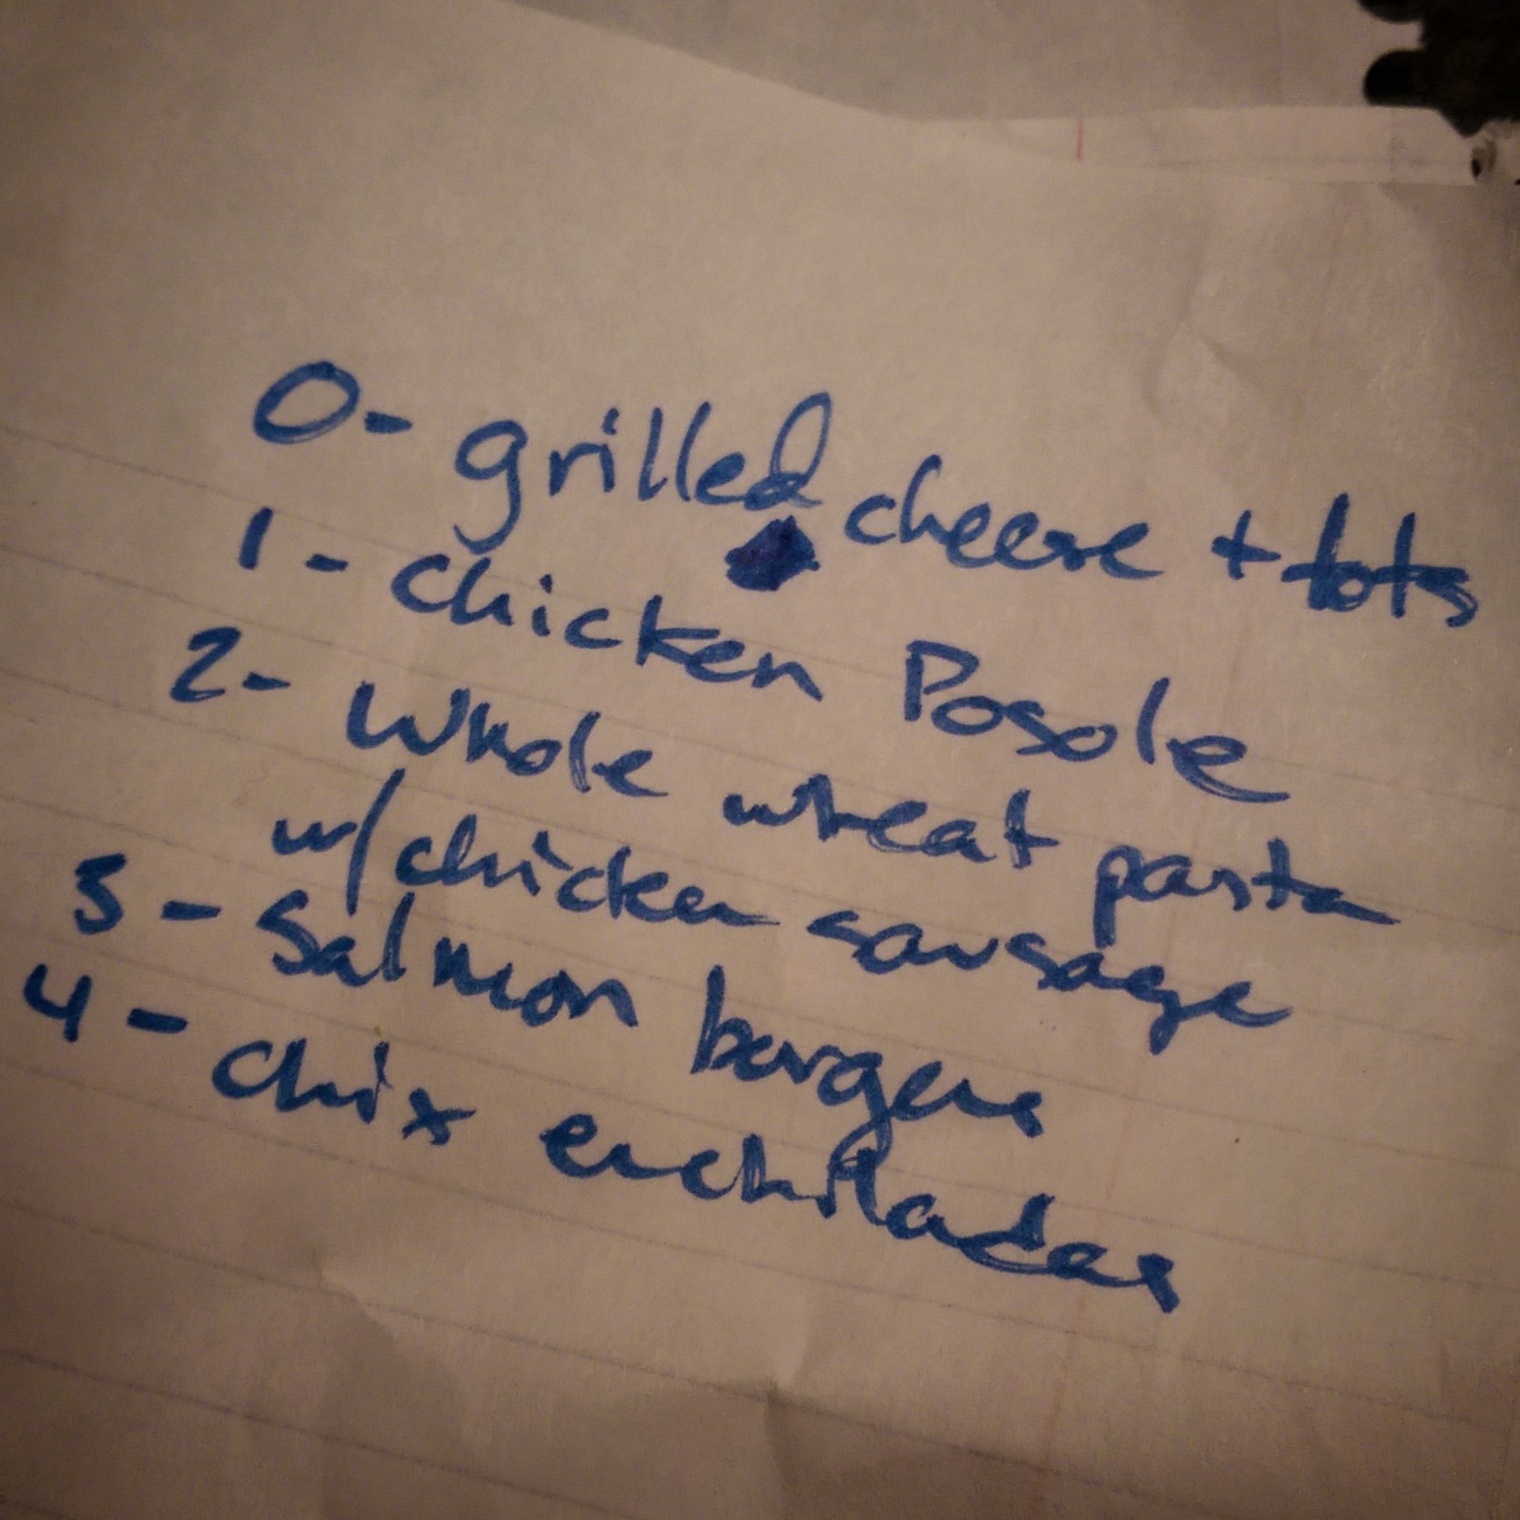 0- grilled cheese + tots
1 - Chicken Posole
2- Whole wheat pasta
w/chicken sausage
3 - Salmon burgers
4 - Chix enchiladas